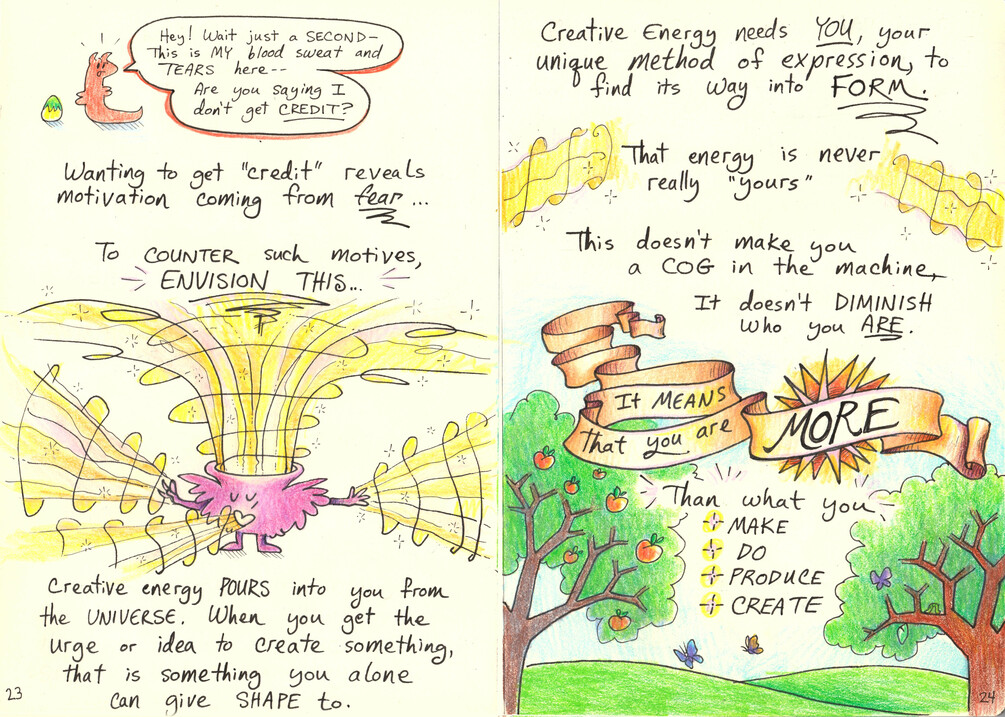 Hey! Wait just a SECOND–
This is MY blood sweat and
TEARS here--
Are you saying I
don't get CREDIT?
Wanting to get "credit" reveals
motivation coming from fear...
To COUNTER such motives,
ENVISION THIS...
Creative energy POURS into you from
the UNIVERSE. When you get the
urge or idea to create something,
that is something you alone
can give SHAPE to.
23
Creative Energy needs YOU, your
unique method of expression, to
find its way into FORM.
That energy is never
really "yours"
This doesn't make you
a COG in the machine,
It doesn't DIMINISH
who you ARE.
It MEANS
that you are
MORE
Than what you
MAKE
DO
PRODUCE
CREATE
24